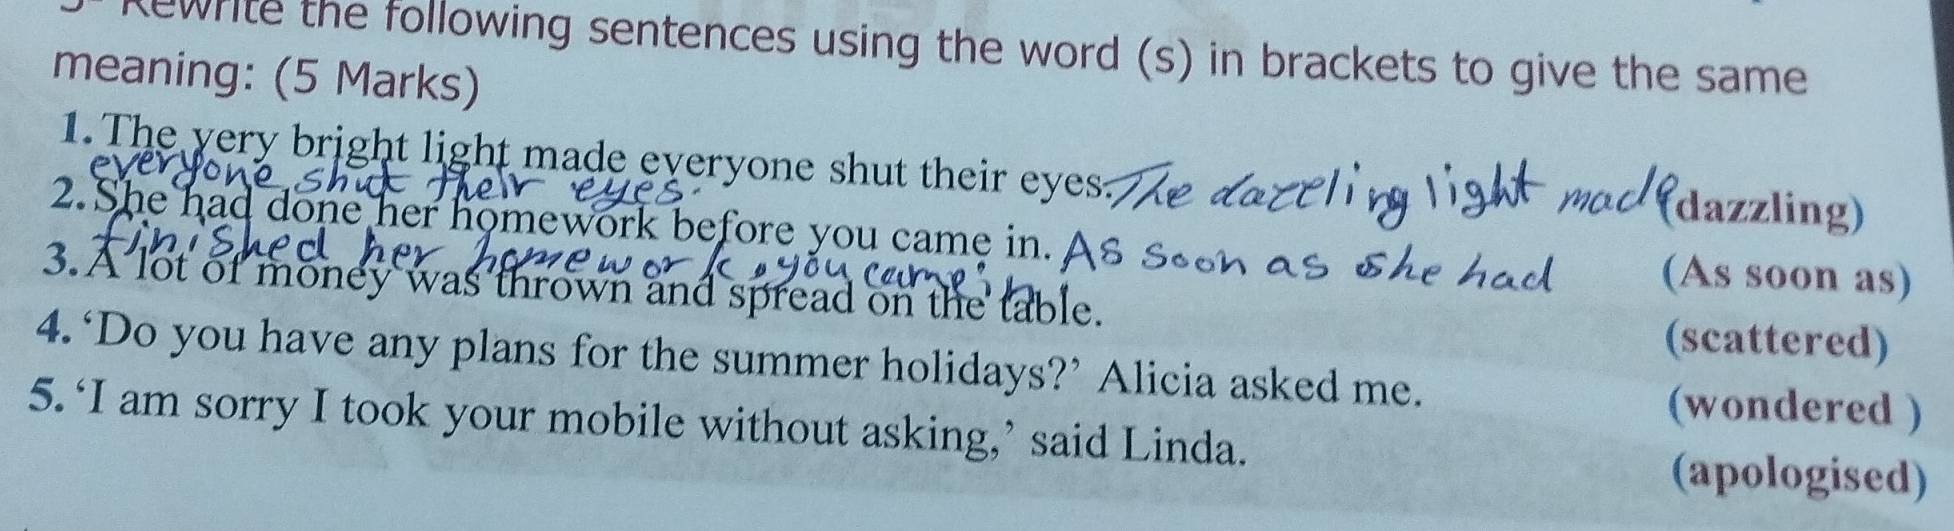 Rewrite the following sentences using the word (s) in brackets to give the same
meaning: (5 Marks)
1. The very bright light made everyone shut their eyes. The dazzling light made (dazzling)
everyone shut their eyes.
2. She had done her homework before you came in. As soon as she had (As soon as)
finished her homework, you came in
3. A lot of money was thrown and spread on the table. (scattered)
4. ‘Do you have any plans for the summer holidays?’ Alicia asked me. (wondered )
5. ‘I am sorry I took your mobile without asking,’ said Linda. (apologised)